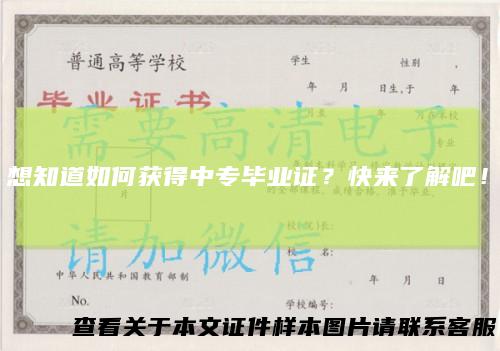 普通高等学校
学生 性别 ,
年 月 日生,于 年
毕业证书
需要高清电子
想知道如何获得中专毕业证？快来了解吧！
片
请加微信
中华人民共和国教育部制
年 月 日
No.
学校编号:
查看关于本文证件样本图片请联系客服